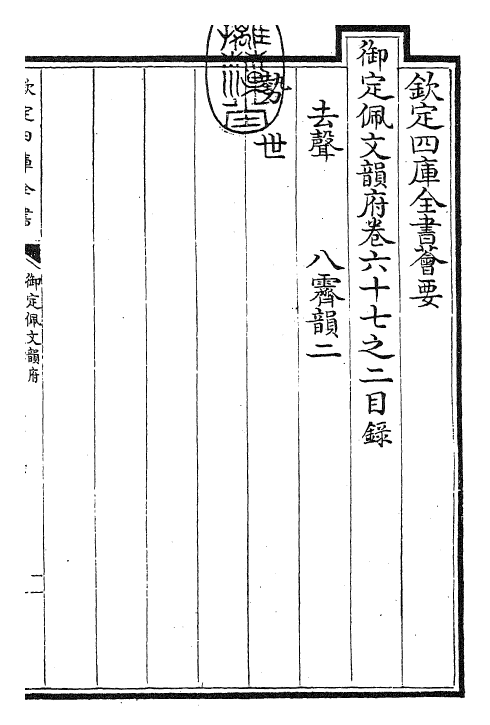 欽定四庫全書薈要
御定佩文韻府卷六十七之二目錄
去聲 八霽韻二
世
勢
欽定四庫全書
御定佩文韻府